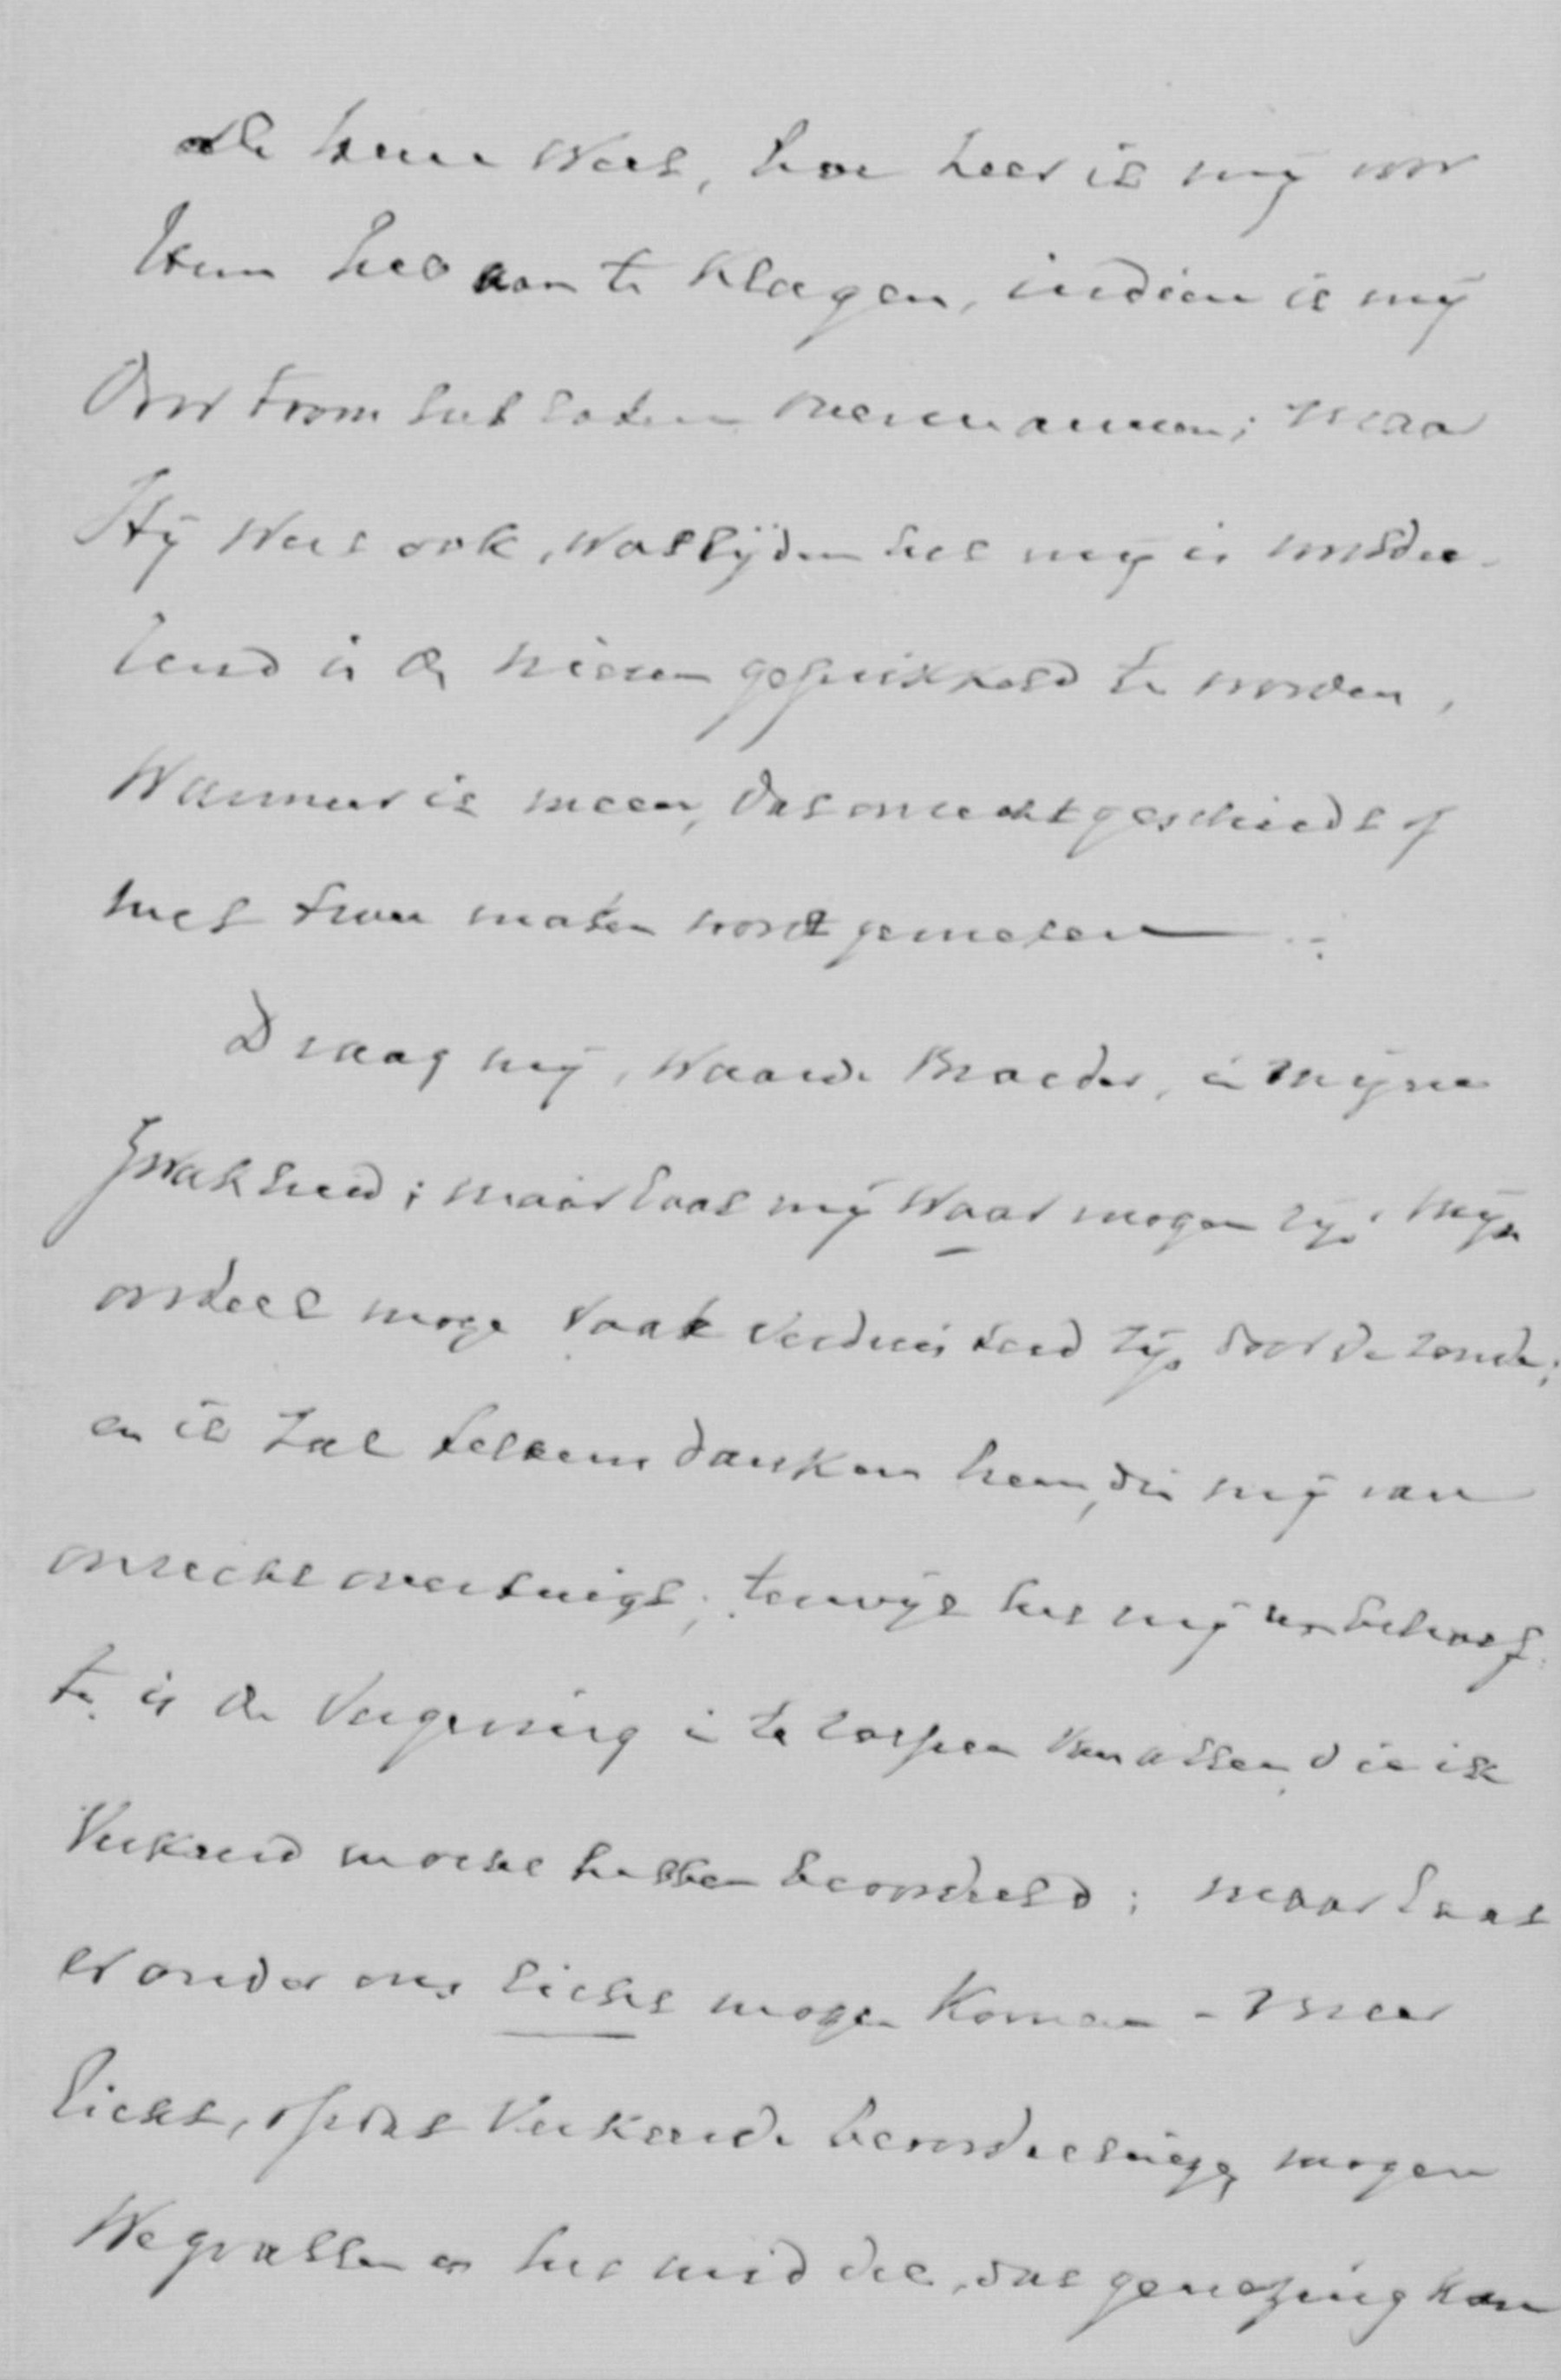 de Heere weet, hoe zeer ik mij voor
Hem heb aan te klagen, indien ik mij
door trom het laten overmannen; maar
Hij weet ook, wat lijden het mij is onsdee-
lend in de nieren geprikkeld te worden,
wanneer ik meen, dat onrecht geschiedt of
met twee maten wordt gemeten
Draag mij, waarde Broeder, in mijne
zwakheid; maar laat mij waar mogen zijn. Mijn
oordeel moge vaak verduisterd zijn door de zonde;
en ik zal telkens danken hem, die mij van
onrecht overtuigt; terwijl het mij een behoef-
te is de vergeving in te roepen van allen, die ik
verkeerd mocht hebben beoordeeld; maar laat
er onder ons licht mogen komen - meer
licht, opdat verkeerde beoordeelingen mogen
wegvallen en het middel, dat genezing kan